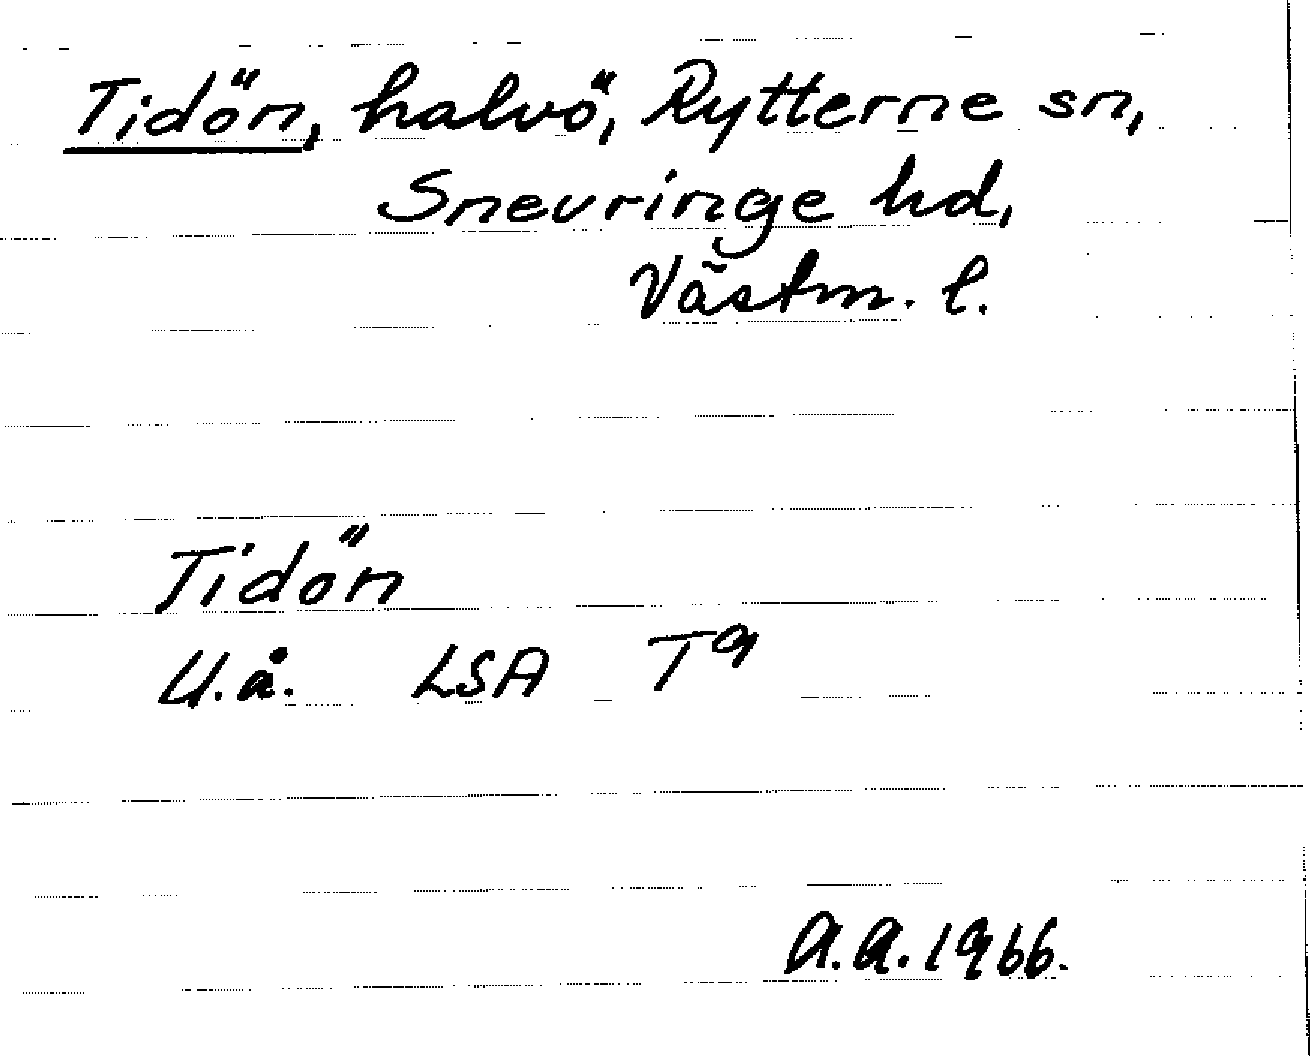 Tidön, halvö, Rytterne sn,
Snevringe hd,
Västm. l.
Tidön
U.å. LSA T9
A.A. 1966.